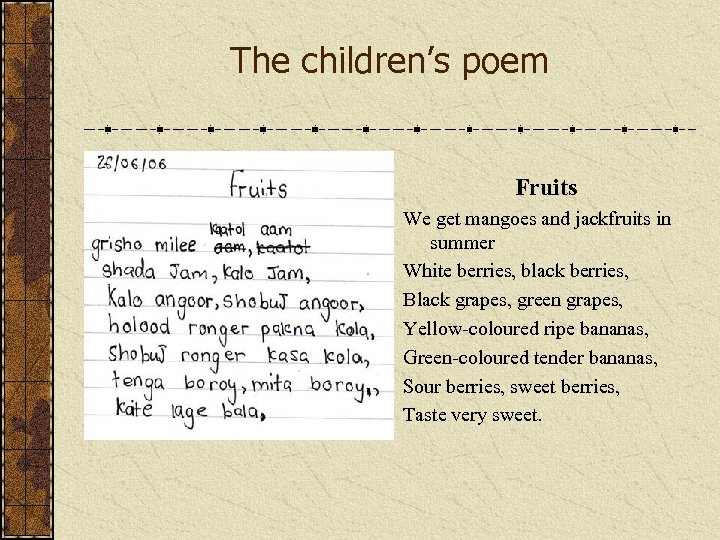 The children's poem
26/06/06
Fruits
kaatol aam
grisho milee aam, kaatol
shada Jam, kalo Jam,
Kalo angoor, shobuJ angoor,
holood ronger pakna kola,
Shobuj ronger kasa kola,
tenga boroy, mita boroy,,
kaite lage bala,
Fruits
We get mangoes and jackfruits in
summer
White berries, black berries,
Black grapes, green grapes,
Yellow-coloured ripe bananas,
Green-coloured tender bananas,
Sour berries, sweet berries,
Taste very sweet.